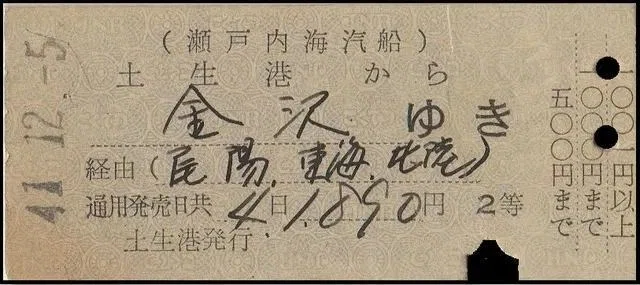 (瀬戸内海汽船)
土生港から
金沢ゆき
経由(尾陽、東海、北陸)
通用発売日共4日1,890円 2等
土生港発行
41.12.-5
一〇〇一円以上
一〇〇〇円まで
五〇〇円まで